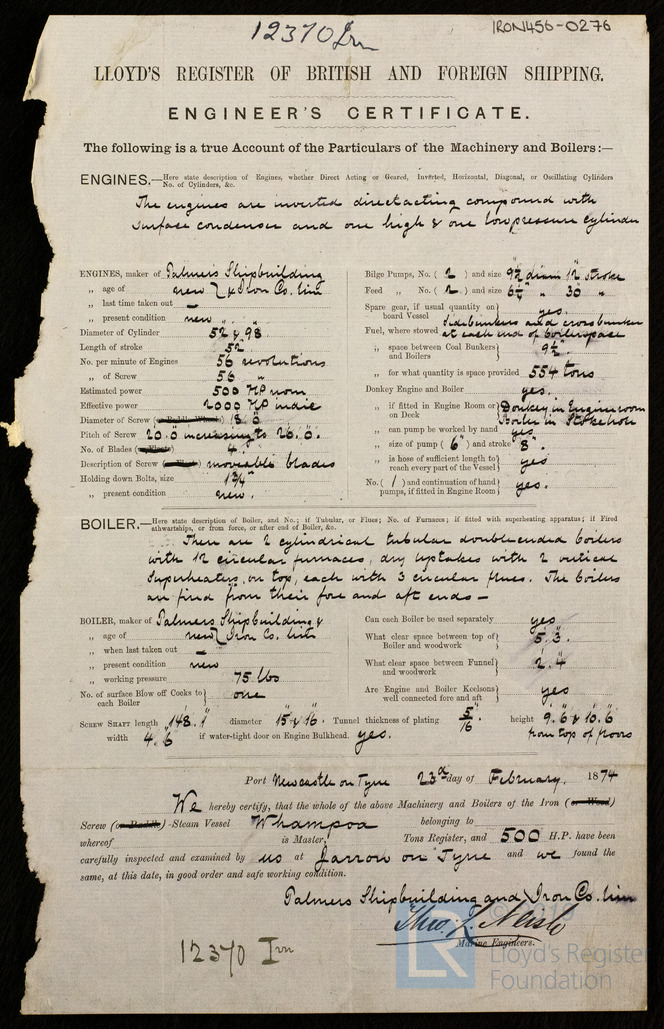 12370 Irn
IRON456-0276
LLOYD'S REGISTER OF BRITISH AND FOREIGN SHIPPING.
ENGINEER'S CERTIFICATE.
The following is a true Account of the Particulars of the Machinery and Boilers:—
ENGINES.—Here state description of Engines, whether Direct Acting or Geared, Inverted, Horizontal, Diagonal, or Oscillating Cylinders
No. of Cylinders, &c.
The engines are inverted direct acting compound with
Surface condenser and one high & one low pressure cylinder
ENGINES, maker of Palmers Shipbuilding
„ age of new & Iron Co. Lim
„ last time taken out —
„ present condition new
Diameter of Cylinder 52" & 98"
Length of stroke 52"
No. per minute of Engines 56 revolutions
„ of Screw 56 "
Estimated power 500 HP nom
Effective power 2000 HP indic
Diameter of Screw (or Paddle Wheel) 18.0
Pitch of Screw 20.0 increasing to 26.0.
No. of Blades (or Floats) 4
Description of Screw (or Wheel) moveable blades
Holding down Bolts, size 1¾"
„ present condition new.
Bilge Pumps, No. ( 2 ) and size 9½ diam 12" stroke
Feed „ No. ( 2 ) and size 6½ " 30 "
Spare gear, if usual quantity on
board Vessel yes.
Fuel, where stowed Sidebunkers and crossbunker
at each end of boilerspace
„ space between Coal Bunkers
and Boilers 9½"
„ for what quantity is space provided 554 tons
Donkey Engine and Boiler yes.
„ if fitted in Engine Room or
on Deck Donkey in Engineroom
Boiler in Stokehole
„ can pump be worked by hand yes
„ size of pump ( 6" ) and stroke 8"
„ is hose of sufficient length to
reach every part of the Vessel yes
No. ( 1 ) and continuation of hand
pumps, if fitted in Engine Room yes.
BOILER.—Here state description of Boiler, and No.; if Tubular, or Flues; No. of Furnaces; if fitted with superheating apparatus; if Fired
athwartships, or from force, or after end of Boiler, &c.
There are 2 cylindrical tubular double ended boilers
with 12 circular furnaces, dry uptakes with 2 vertical
Superheaters on top, each with 3 circular flues. The boilers
are fired from their fore and aft ends —
BOILER, maker of Palmers Shipbuilding &
„ age of new Iron Co. Lim
„ when last taken out —
„ present condition new
„ working pressure 75 lbs
No. of surface Blow off Cocks to
each Boiler one
Can each Boiler be used separately yes
What clear space between top of
Boiler and woodwork 5.3.
What clear space between Funnel
and woodwork 2.4
Are Engine and Boiler Keelsons
well connected fore and aft yes
SCREW SHAFT length 148.1" diameter 15" & 16" Tunnel thickness of plating 5/16" height 9.6 & 10.6
width 4.6 if water-tight door on Engine Bulkhead. yes. from top of floors
Port Newcastle on Tyne 23d day of February. 1874
We hereby certify, that the whole of the above Machinery and Boilers of the Iron (or Wood)
Screw (or Paddle) Steam Vessel Whampoa belonging to
whereof is Master, Tons Register, and 500 H.P. have been
carefully inspected and examined by us at Jarrow on Tyne and we found the
same, at this date, in good order and safe working condition.
Palmers Shipbuilding and Iron Co. Lim
Marine Engineers.
12370 Irn
LR
Lloyd's Register
Foundation